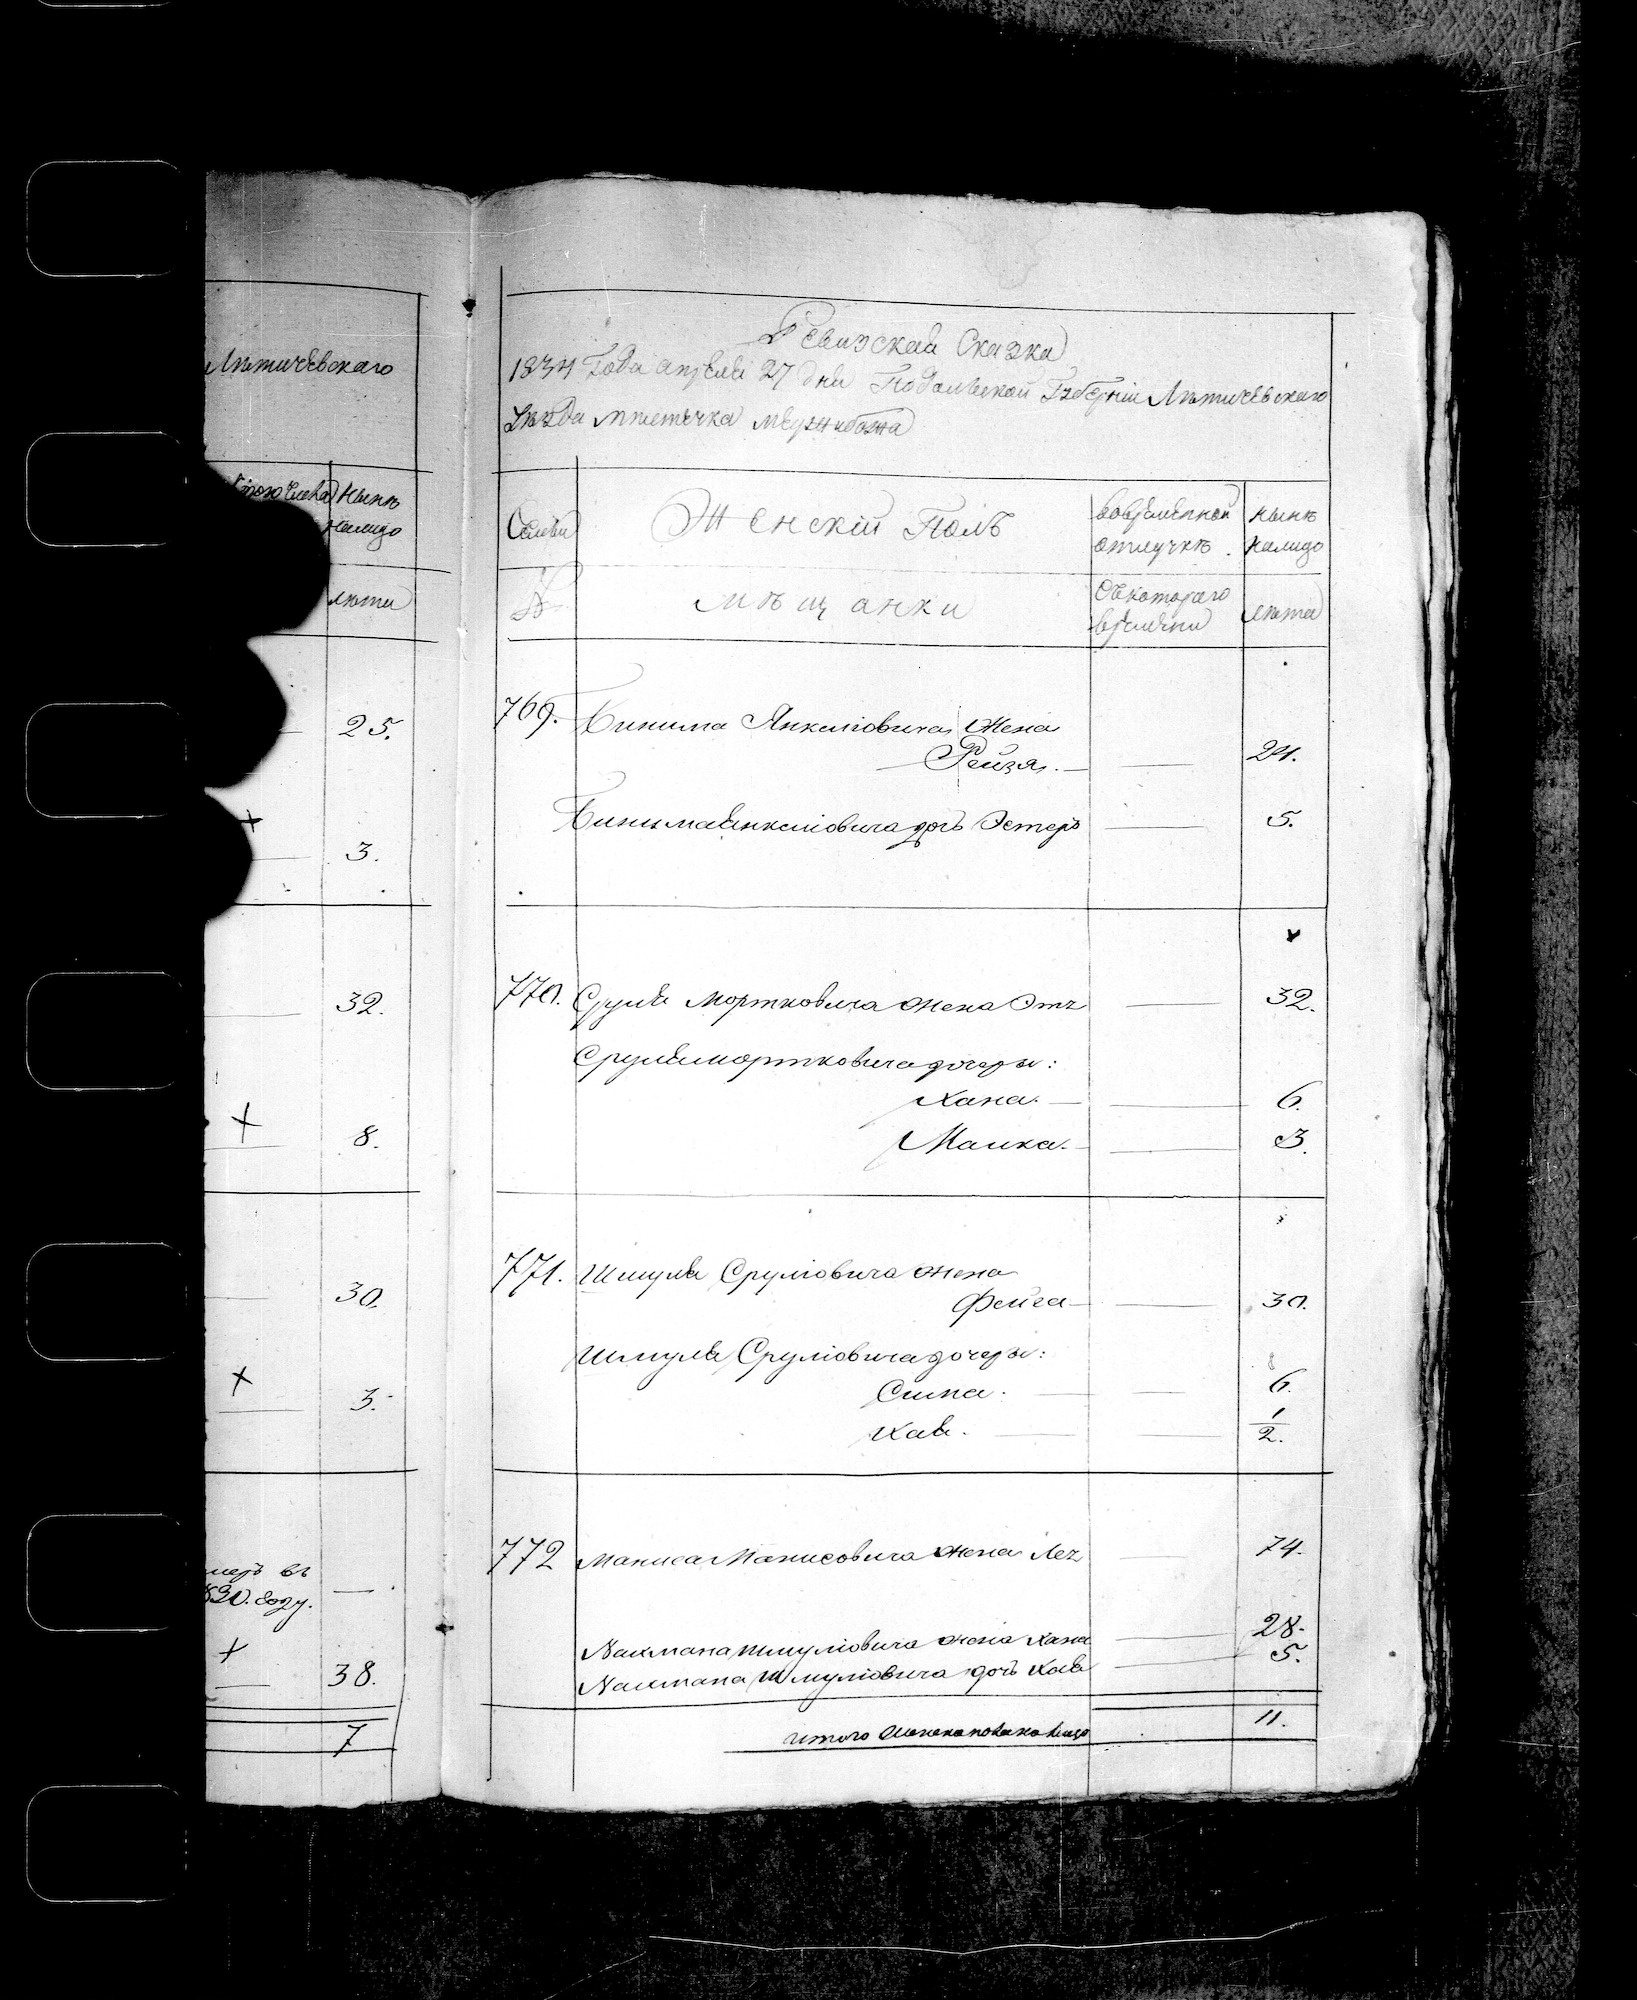 Лѣтичевскаго
нынѣ
налицо
лѣта
25.
3.
32.
8.
30.
3.
въ
году.
38.
7
Ревизская Сказка
1834 Года апреля 27 дня Подольской Губерніи Лѣтичевскаго
Уѣзда мѣстечка межибожа
Семьи
Женскій Полъ
вовременной
отлучкѣ
нынѣ
налицо
№
мѣщанки
Съкотораго
времени
лѣта
769. Бинима Янкеліовича Жена
Рейзя. 24.
Бинимаянкеліовича дочь Эстеръ 5.
770. Сруля Мортковича жена Этъ 32.
Срулямортковича дочеры:
Хана. 6.
Малка. 3.
771. Шмуля Сруліовича жена
Фейга 30.
Шмуля Сруліовича дочеры:
Сима. 6.
Хая. 1/2.
772 Маниса Манисовича жена Леа 74.
Нахмана Шмуліовича жена Хана 28.
Нахмана Шмуліовича дочь Хая 5.
итого женска пола налицо 11.